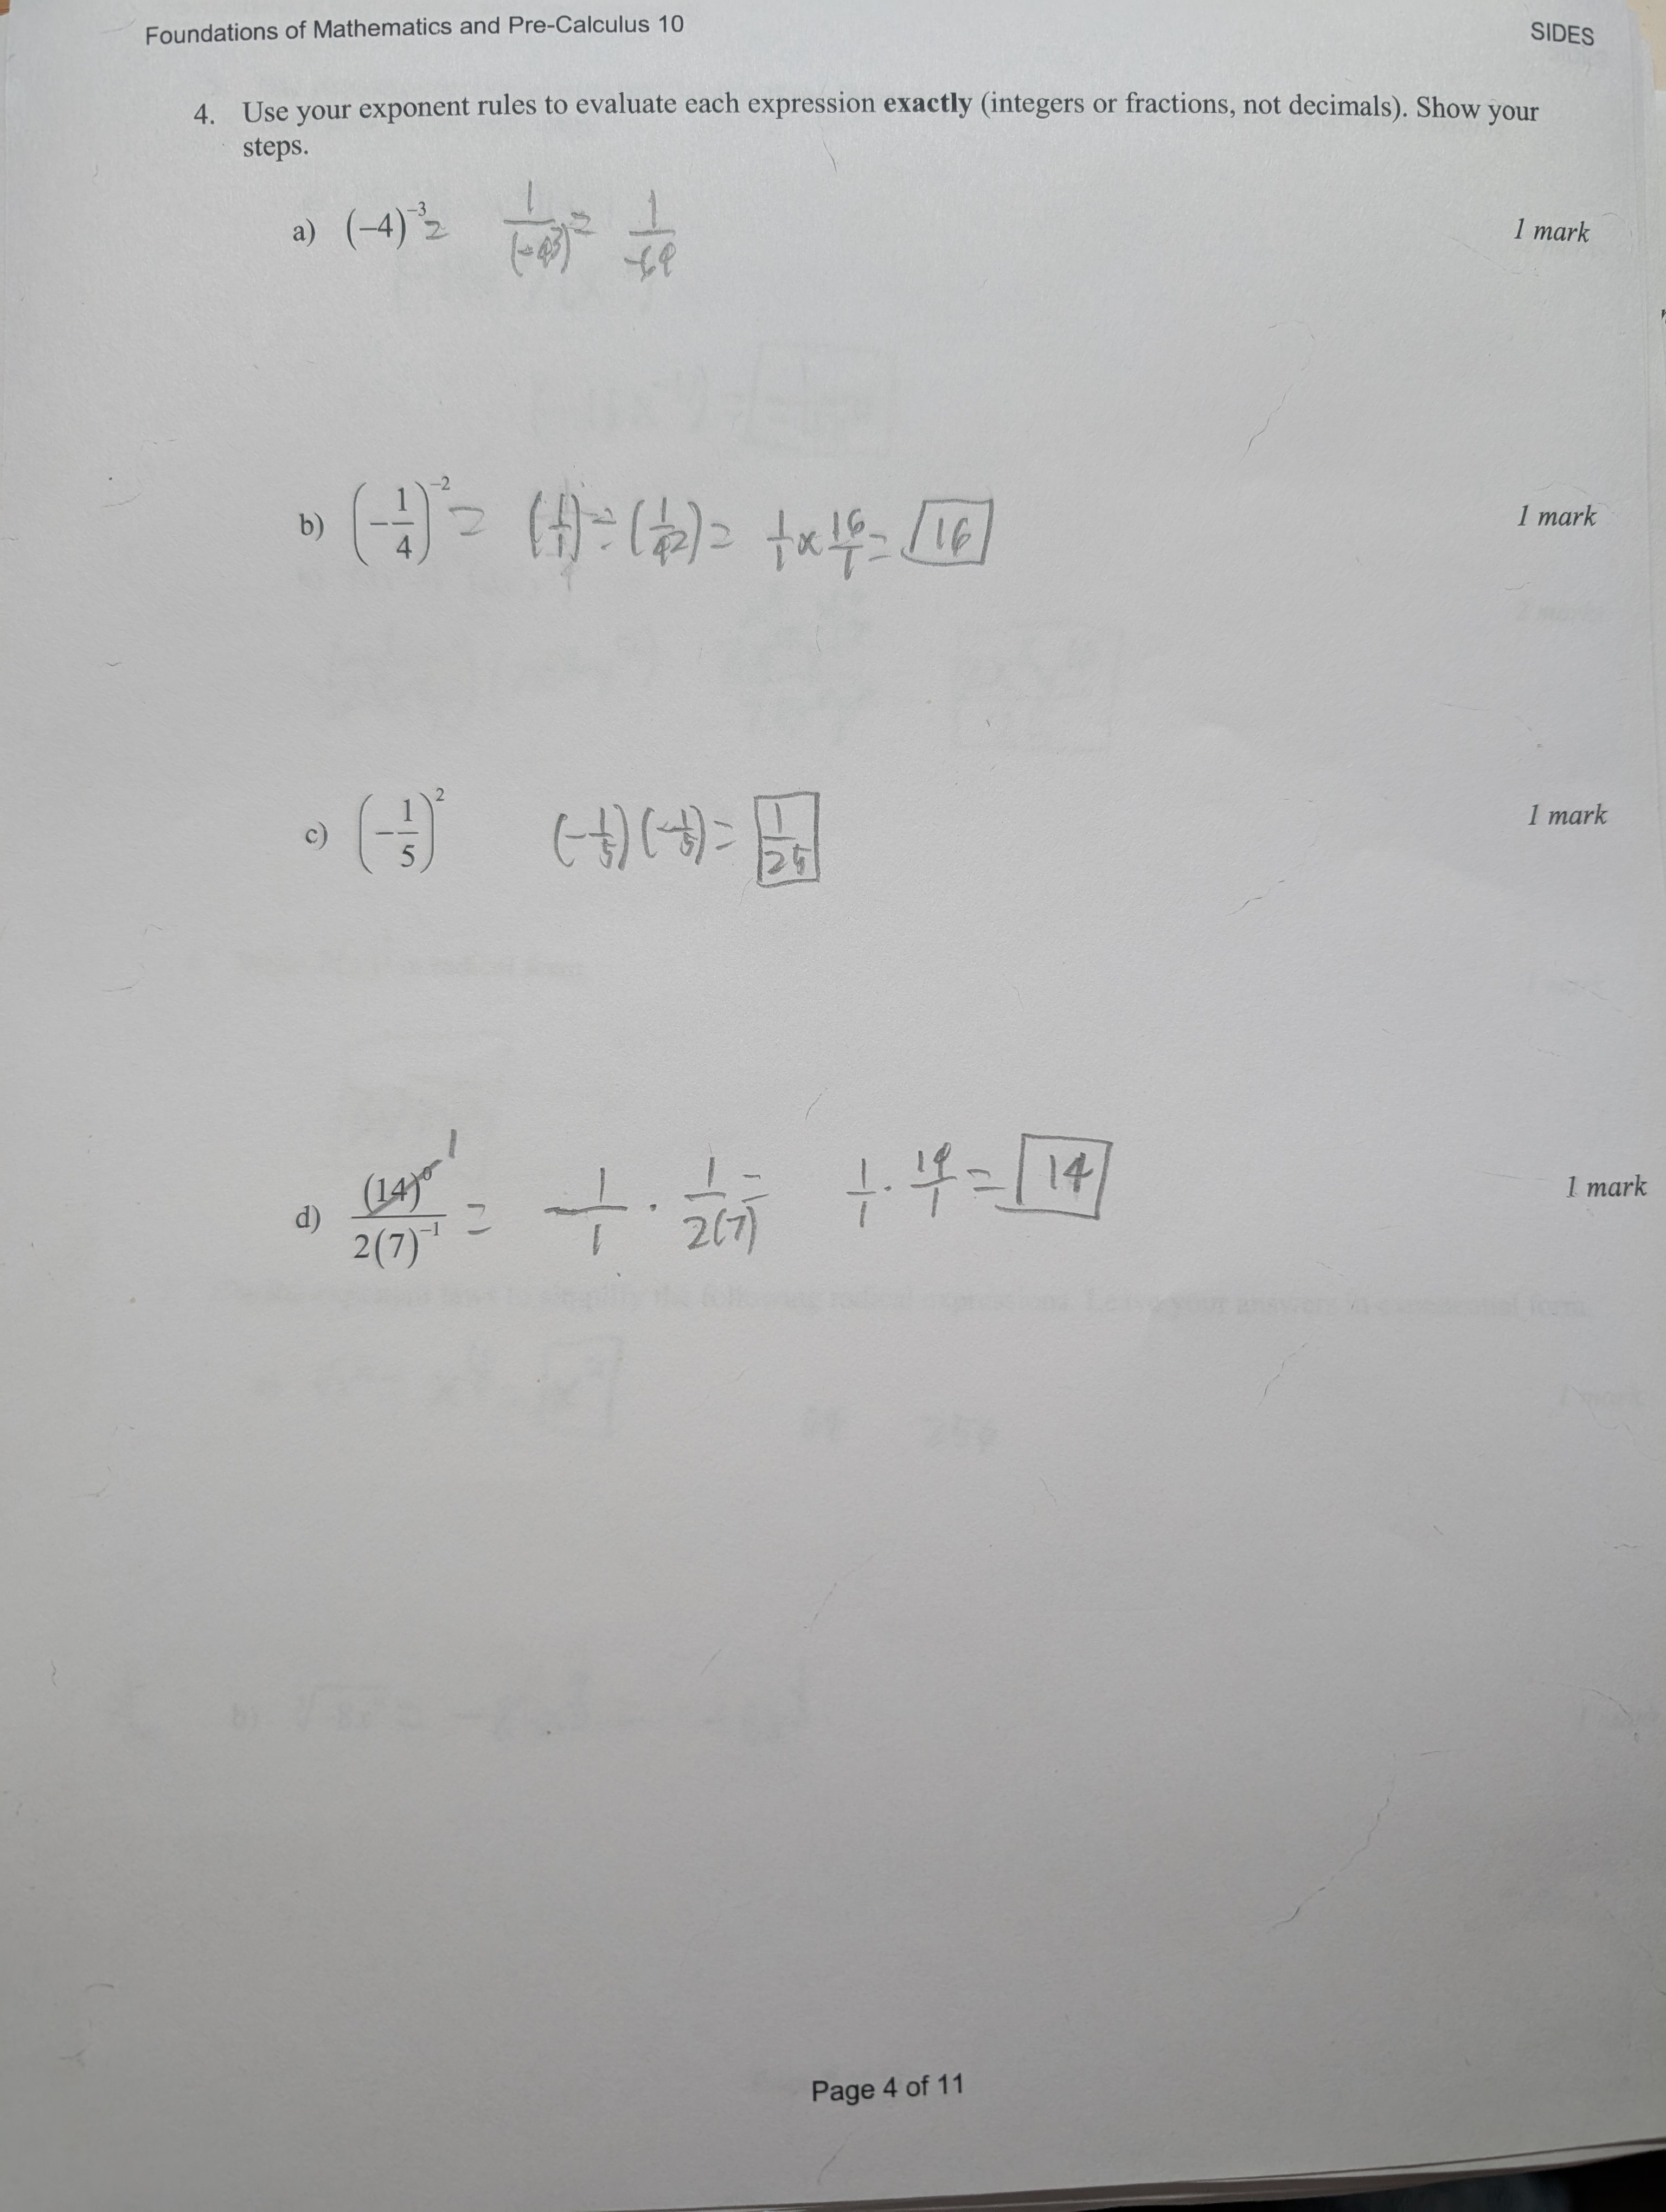 Foundations of Mathematics and Pre-Calculus 10
SIDES
4. Use your exponent rules to evaluate each expression exactly (integers or fractions, not decimals). Show your
steps.
a) (−4)⁻³ = 1/(-4³) = 1/-64
1 mark
b) (−1/4)⁻² = (1/1) ÷ (1/4²) = 1/1 × 16/1 = 16
1 mark
c) (−1/5)² (-1/5)(-1/5) = 1/25
1 mark
d) (14)⁰/2(7)⁻¹ 1 = 1/1 · 1/2(7) = 1/1 · 14/1 = 14
1 mark
Page 4 of 11